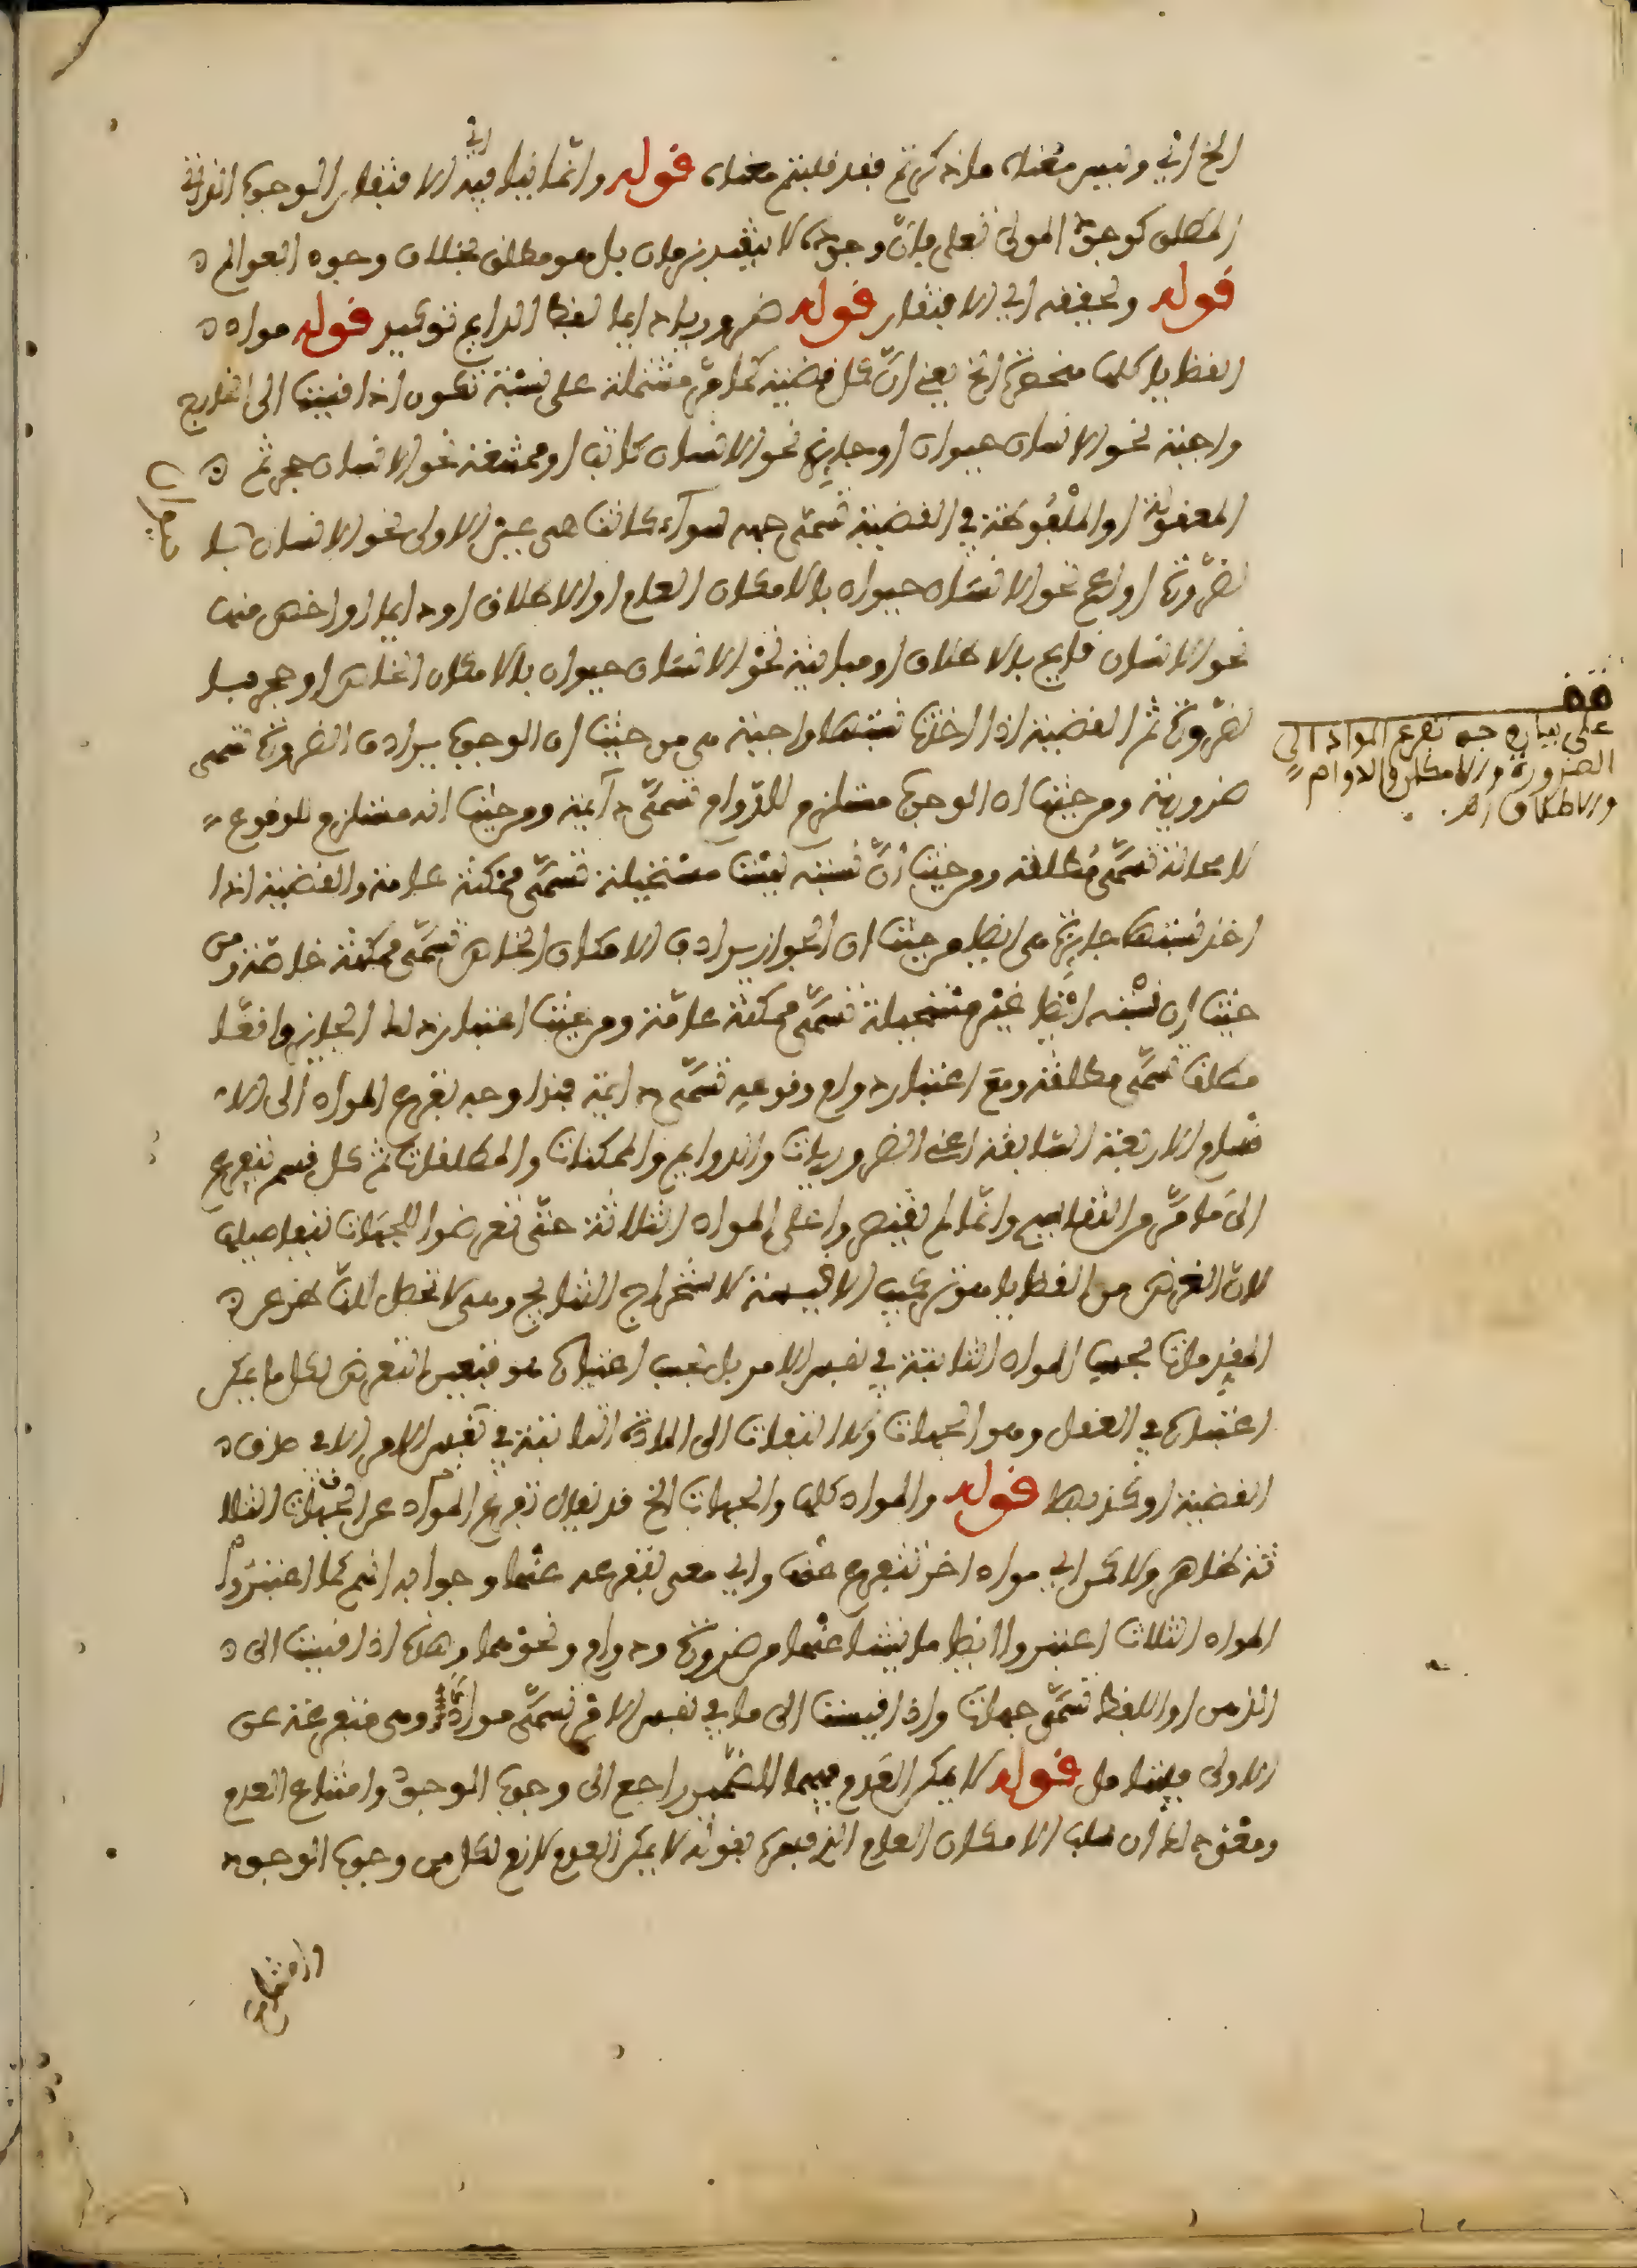 الخ اي وليس معناه ما ذكرتم فقد قلبتم معناه قوله وانما قيل فيه اي الافتقار الوجوب الذاتي
المطلق كوجود المولى تعلى فان وجوده لا يتقيد بزمان بل هو مطلق بخلاف وجود العوالم
قوله وتحققه اي الافتقار قوله ضروريا دايما لفظ الدايم توكيد قوله مواد
القضايا كلها منحصرة الخ يعني ان كل قضية كما مر مشتملة على نسبة تكون اذا قيست الى الخارج
واجبة نحو الانسان حيوان او جايزة نحو الانسان كاتب او ممتنعة نحو الانسان حجر ثم
المعقولة او الملفوظة في القضية تسمى جهة سواء كانت هي عين الاولى نحو الانسان
بالضرورة او اعم نحو الانسان حيوان بالامكان العام او الاطلاق او دايما او اخص منها
نحو الانسان قايم بالاطلاق او مباينة نحو الانسان حيوان بالامكان الخاص او حجر
بالضرورة ثم القضية اذا اخذت نسبتها واجبة هي من حيث ان الوجوب يرادف الضرورة تسمى
ضرورية ومن حيث ان الوجوب مستلزم للدوام تسمى دايمة ومن حيث انه مستلزم للوقوع
لا محالة تسمى مطلقة ومن حيث ان نسبته ليست مستحيلة تسمى ممكنة عامة والقضية اذا
اخذ نسبتها جايزة هي ايضا من حيث ان الجواز يرادف الامكان الخاص تسمى ممكنة خاصة ومن
حيث ان نسبته ايضا غير مستحيلة تسمى ممكنة عامة ومن حيث اعتبار ذلك الجايز واقعا
مطلقا تسمى مطلقة ومع اعتبار دوام وقوعه تسمى دايمة فهذا وجه تفرع المواد الى الا
قسام الاربعة السابقة اعني الضروريات والدوايم والممكنات والمطلقات ثم كل قسم يتفرع
الى ما مر من التفاصيح وانما لم يقتصروا على المواد الثلاثة حتى تعرضوا للجهات بتفاصيلها
لان الغرض من القضايا هو تركيب الاقيسة لاستخراج النتايج وهي لا تحصل
المقدمات بحسب المواد الثابتة في نفس الامر بل بحسب اعتبار فتعين التعرض لكل ما يمكن
اعتباره في العقل وهو الجهات ولا التفات الى المادة الثابتة في نفس الامر الا في صدق
القضية او كذبها قوله والمواد كلها والجهات الخ قد يقال تفرع المواد عن الجهات الثلا
ثة ظاهر ولاكن اي مواد اخر تتفرع عنه واي معنى لتفرعه عنها وجوابه انهم كما اعتبروا
المواد الثلاث اعتبروا ايضا ما ينشا عنها من ضرورة ودوام ونحوهما وهذه اذا قيست الى
الذهن او اللفظ تسمى جهات واذا قيست الى ما في نفس الامر تسمى مواد وهي متفرعة عن
الاولى فليتامل قوله لا يمكن العدم فيهما الضمير راجع الى وجوب الوجود وامتناع العدم
ومعنى ذلك ان سلب الامكان العام الذي فسره بقوله لا يمكن العدم لازم لكل من وجوب الوجود
وامتناع
قف
على بيان وجه تفرع المواد الى
الضرورة والامكان والدوام
والاطلاق اهـ